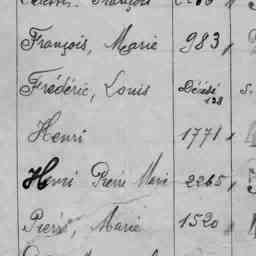 François
François, Marie 983,
Frédéric, Louis Décédé 138 S.
Henri 1771,
Henri Pierre Marie 2265,
Pierre, Marie 1520,